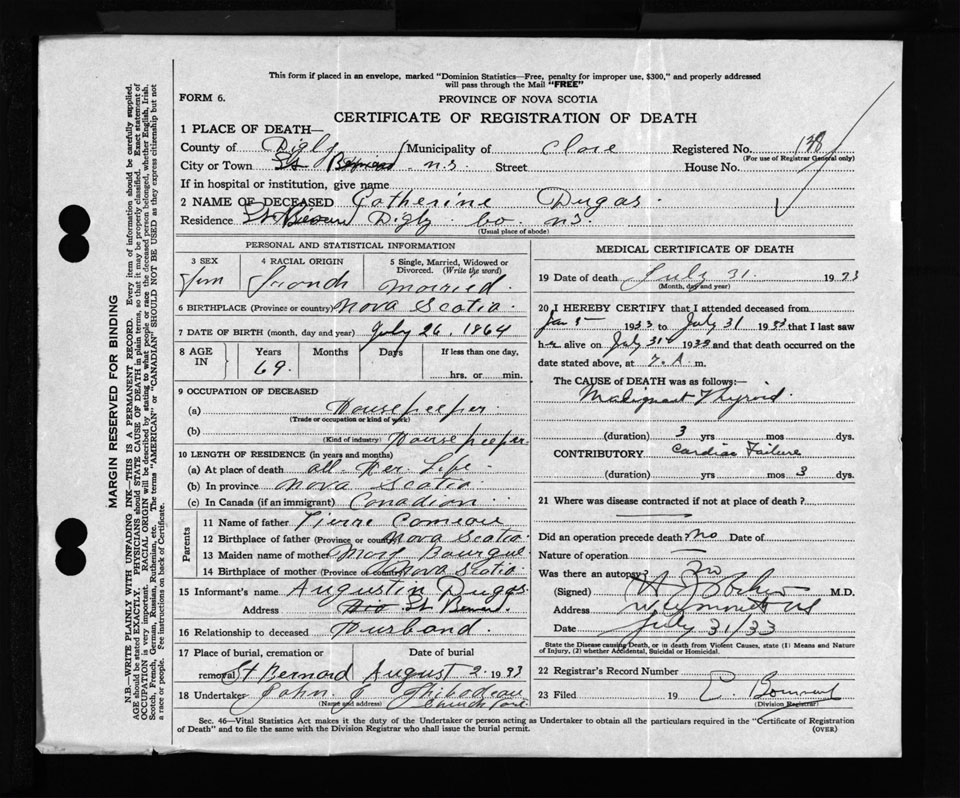 This form if placed in an envelope, marked "Dominion Statistics—Free, penalty for improper use, $300," and properly addressed
will pass through the Mail "FREE"
FORM 6.
PROVINCE OF NOVA SCOTIA
CERTIFICATE OF REGISTRATION OF DEATH
1 PLACE OF DEATH—
County of Digby Municipality of Clare Registered No. 138
(For use of Registrar General only)
City or Town St Bernard N.S. Street House No.
If in hospital or institution, give name
2 NAME OF DECEASED Catherine Dugas.
Residence St Digby Co. NS.
(Usual place of abode)
PERSONAL AND STATISTICAL INFORMATION
3 SEX 4 RACIAL ORIGIN 5 Single, Married, Widowed or
Divorced. (Write the word)
Fem Married.
6 BIRTHPLACE (Province or country) Nova Scotia.
7 DATE OF BIRTH (month, day and year) July 26, 1864
8 AGE IN Years Months Days If less than one day,
69. hrs. or min.
9 OCCUPATION OF DECEASED
(a) Housekeeper.
(Trade or occupation or kind of work)
(b) Housekeeper.
(Kind of industry)
10 LENGTH OF RESIDENCE (in years and months)
(a) At place of death all Her Life.
(b) In province Nova Scotia.
(c) In Canada (if an immigrant) Canadian.
Parents
11 Name of father Pierre Comeau
12 Birthplace of father (Province or country) Nova Scotia.
13 Maiden name of mother Mary Bourque
14 Birthplace of mother (Province or country) Nova Scotia.
15 Informant's name Augustin Dugas.
Address St Bernard.
16 Relationship to deceased Husband.
17 Place of burial, cremation or Date of burial
removal St Bernard August 2. 1933
18 Undertaker John Thibodeau
(Name and address) Church
MEDICAL CERTIFICATE OF DEATH
19 Date of death July 31. 1933
(Month, day and year)
20 I HEREBY CERTIFY that I attended deceased from
Jan 5 1933 to July 31 1933 that I last saw
her alive on July 31st 1933 and that death occurred on the
date stated above, at 7. A. m.
The CAUSE OF DEATH was as follows:—
Malignant Thyroid.
(duration) 3 yrs mos dys.
CONTRIBUTORY Cardiac Failure
(duration) yrs mos 3 dys.
21 Where was disease contracted if not at place of death?
Did an operation precede death No Date of
Nature of operation
Was there an autopsy? No
(Signed) M.D.
Address Weymouth NS
Date July 31/33
State the Disease causing Death, or in death from Violent Causes, state (1) Means and Nature
of Injury, (2) whether Accidental, Suicidal or Homicidal.
22 Registrar's Record Number
23 Filed 19
(Division Registrar)
Sec. 46—Vital Statistics Act makes it the duty of the Undertaker or person acting as Undertaker to obtain all the particulars required in the "Certificate of Registration
of Death" and to file the same with the Division Registrar who shall issue the burial permit. (OVER)
MARGIN RESERVED FOR BINDING
N.B.—WRITE PLAINLY WITH UNFADING INK—THIS IS A PERMANENT RECORD. Every item of information should be carefully supplied.
AGE should be stated EXACTLY. PHYSICIANS should STATE CAUSE OF DEATH in plain terms, so that it may be properly classified. Exact statement of
OCCUPATION is very important. RACIAL ORIGIN will be described by stating to what people or race the deceased person belonged, whether English, Irish,
Scotch, French, German, Russian, Ruthenian, etc. The terms "AMERICAN" or "CANADIAN" SHOULD NOT BE USED as they express citizenship but not
a race or people. Fee instructions on back of Certificate.